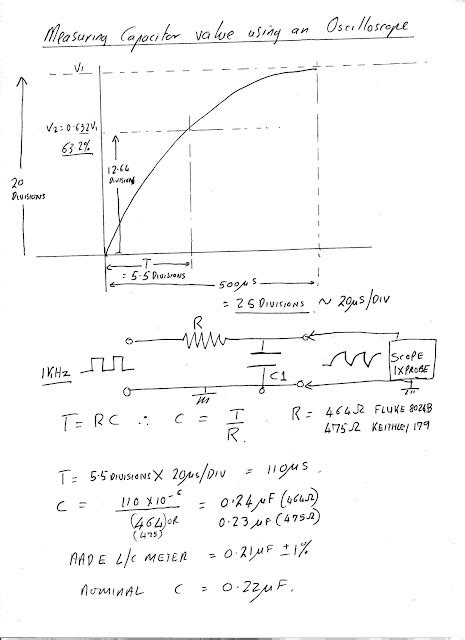 Measuring Capacitor value using an Oscilloscope
V1
V2=0.632V1
63.2%
20
DIVISIONS
12.64
DIVISIONS
T
= 5.5 DIVISIONS
500µS
= 25 DIVISIONS ~ 20µS/DIV
R
1KHz
C1
SCOPE
1XPROBE
T= RC ∴ C = T/R. R = 464Ω FLUKE 8024B
475Ω KEITHLEY 179
T= 5.5 DIVISIONS X 20µS/DIV = 110µS.
C = 110 X10⁻⁶ / (464) OR (475) = 0.24µF (464Ω)
0.23µF (475Ω)
AADE L/C METER = 0.21µF ±1%
NOMINAL C = 0.22µF.